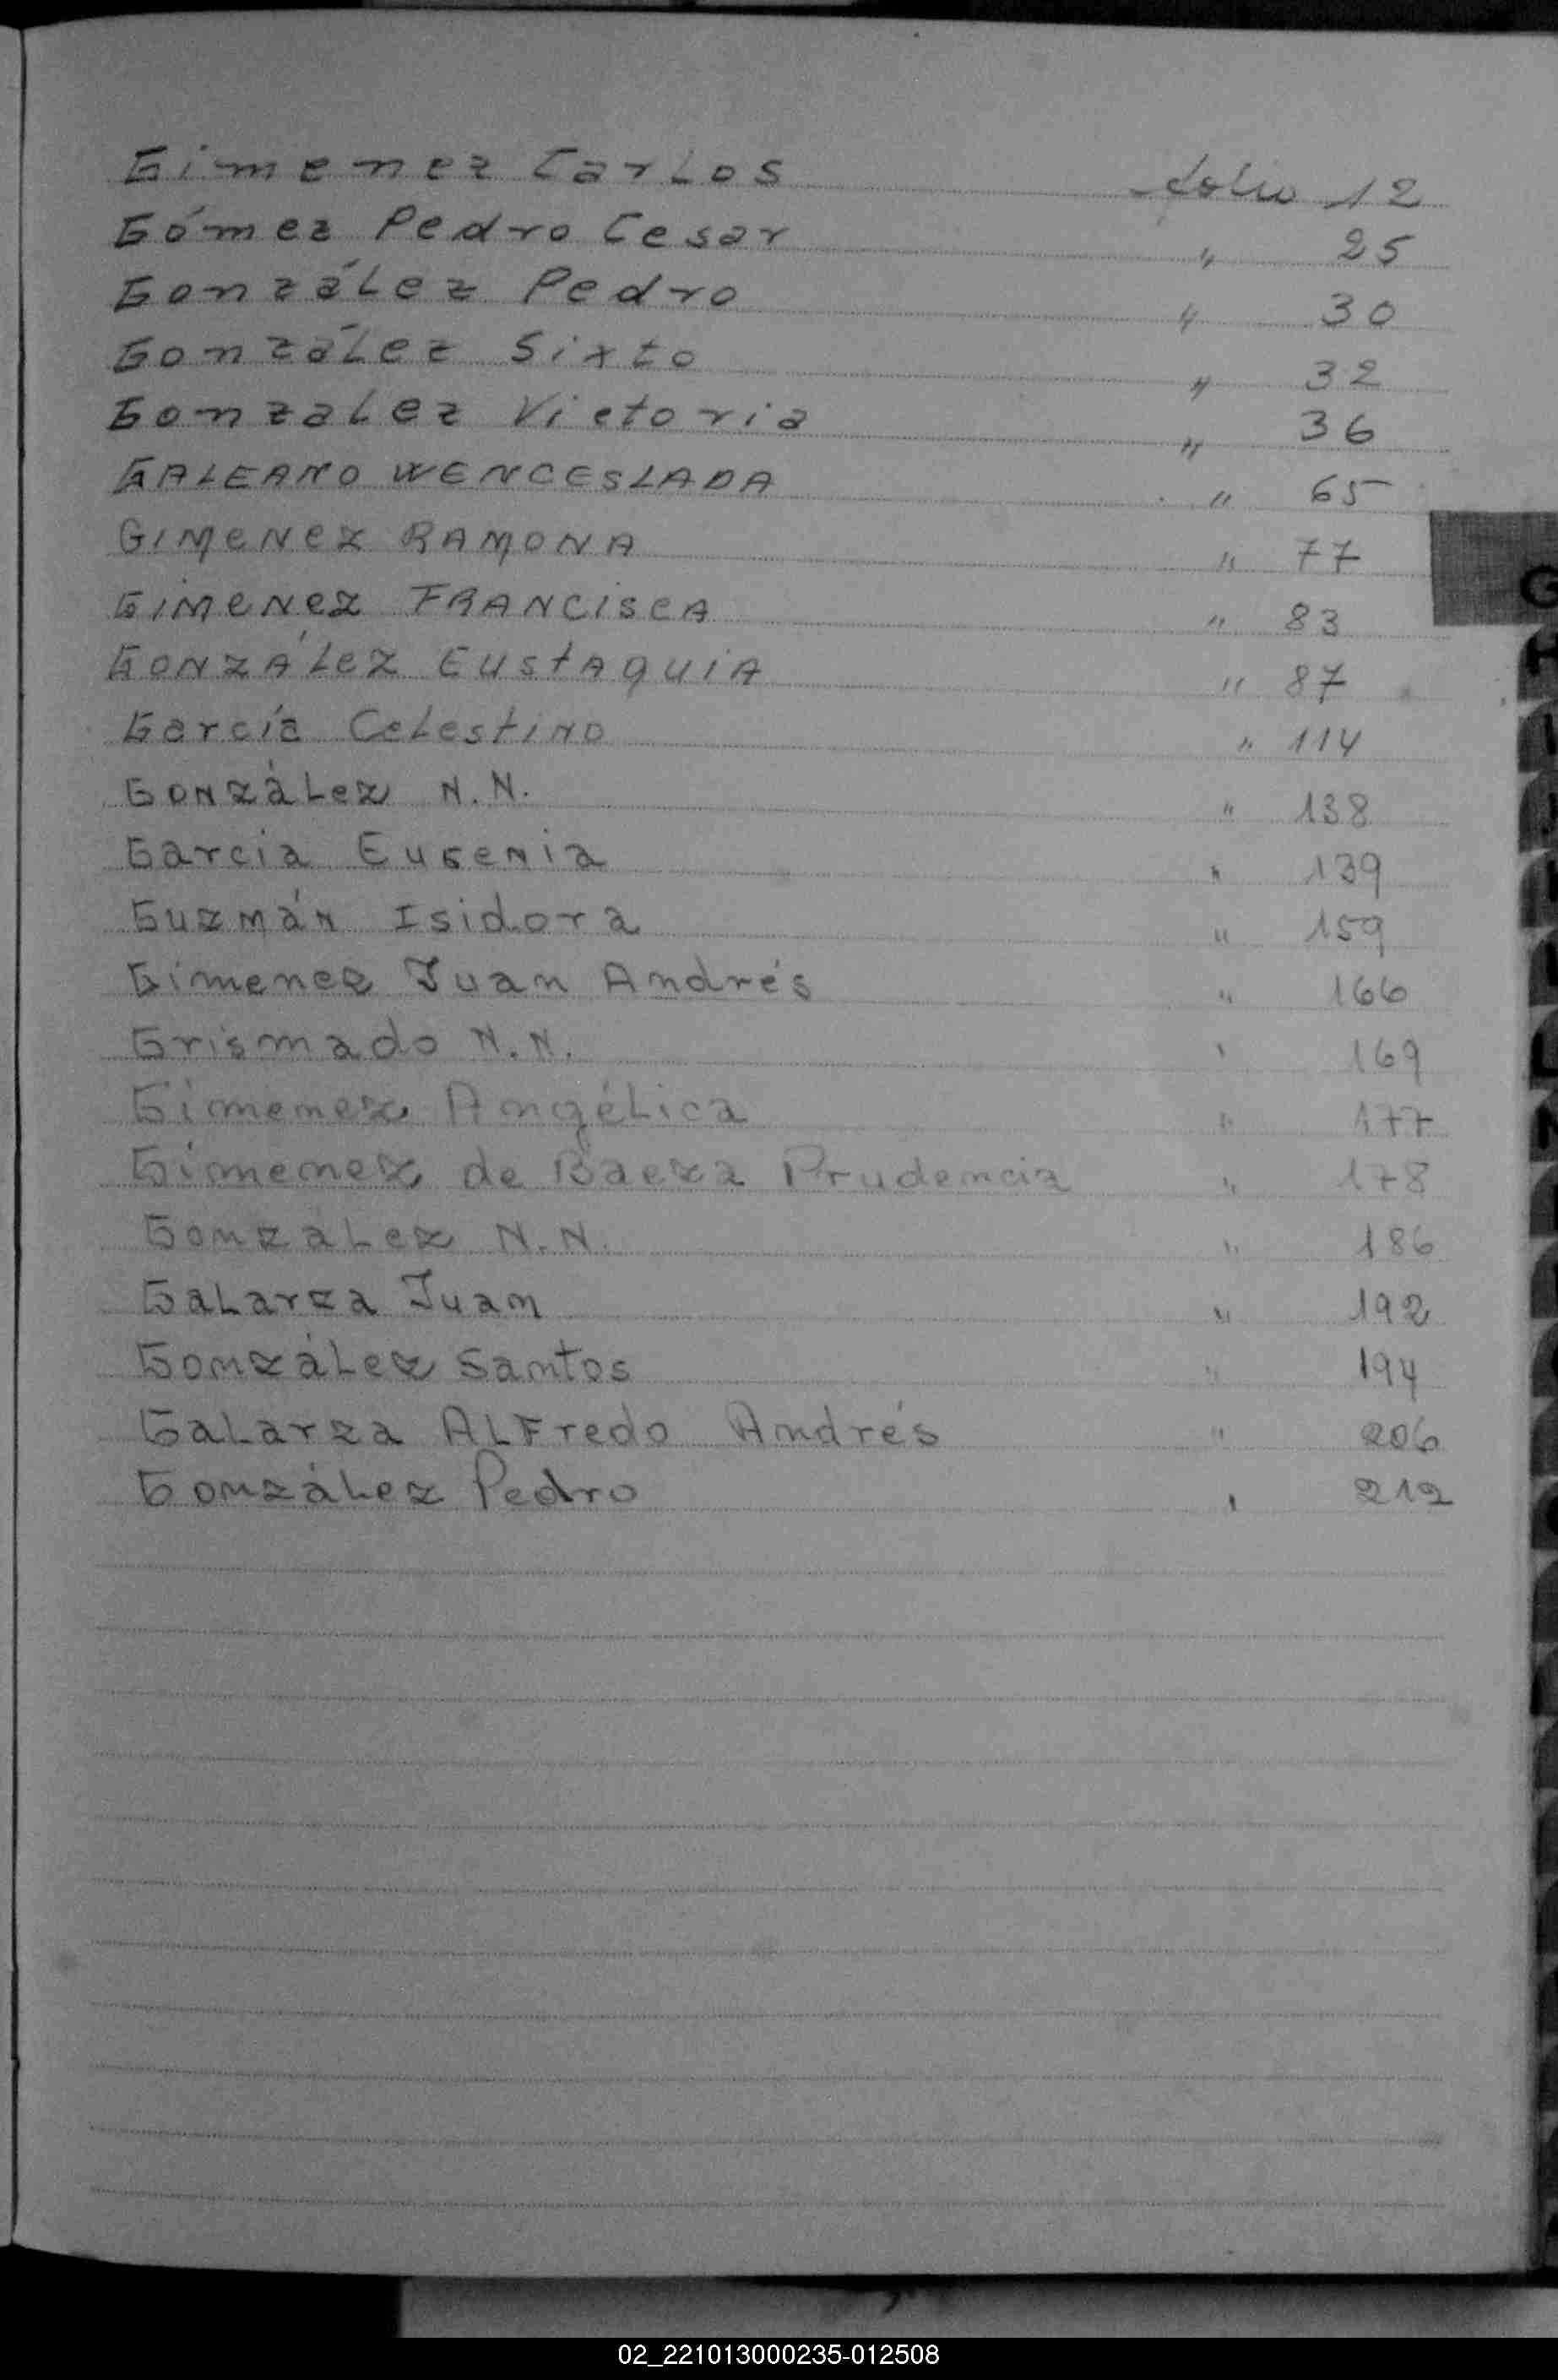 Gimenez Carlos folio 12
Gómez Pedro Cesar " 25
González Pedro " 30
González Sixto " 32
Gonzalez Victoria " 36
GALEANO WENCESLADA " 65
GIMENEZ RAMONA " 77
GIMENEZ FRANCISCA " 83
GONZÁLEZ EUSTAQUIA " 87
García Celestino " 114
González N.N. " 138
Garcia Eugenia " 139
Guzmán Isidora " 159
Gimenez Juan Andrés " 166
Grismado N.N. " 169
Gimenez Angélica " 177
Gimenez de Baeza Prudencia " 178
González N.N. " 186
Galarza Juan " 192
González Santos " 194
Galarza Alfredo Andrés " 206
González Pedro " 212
G
02_221013000235-012508